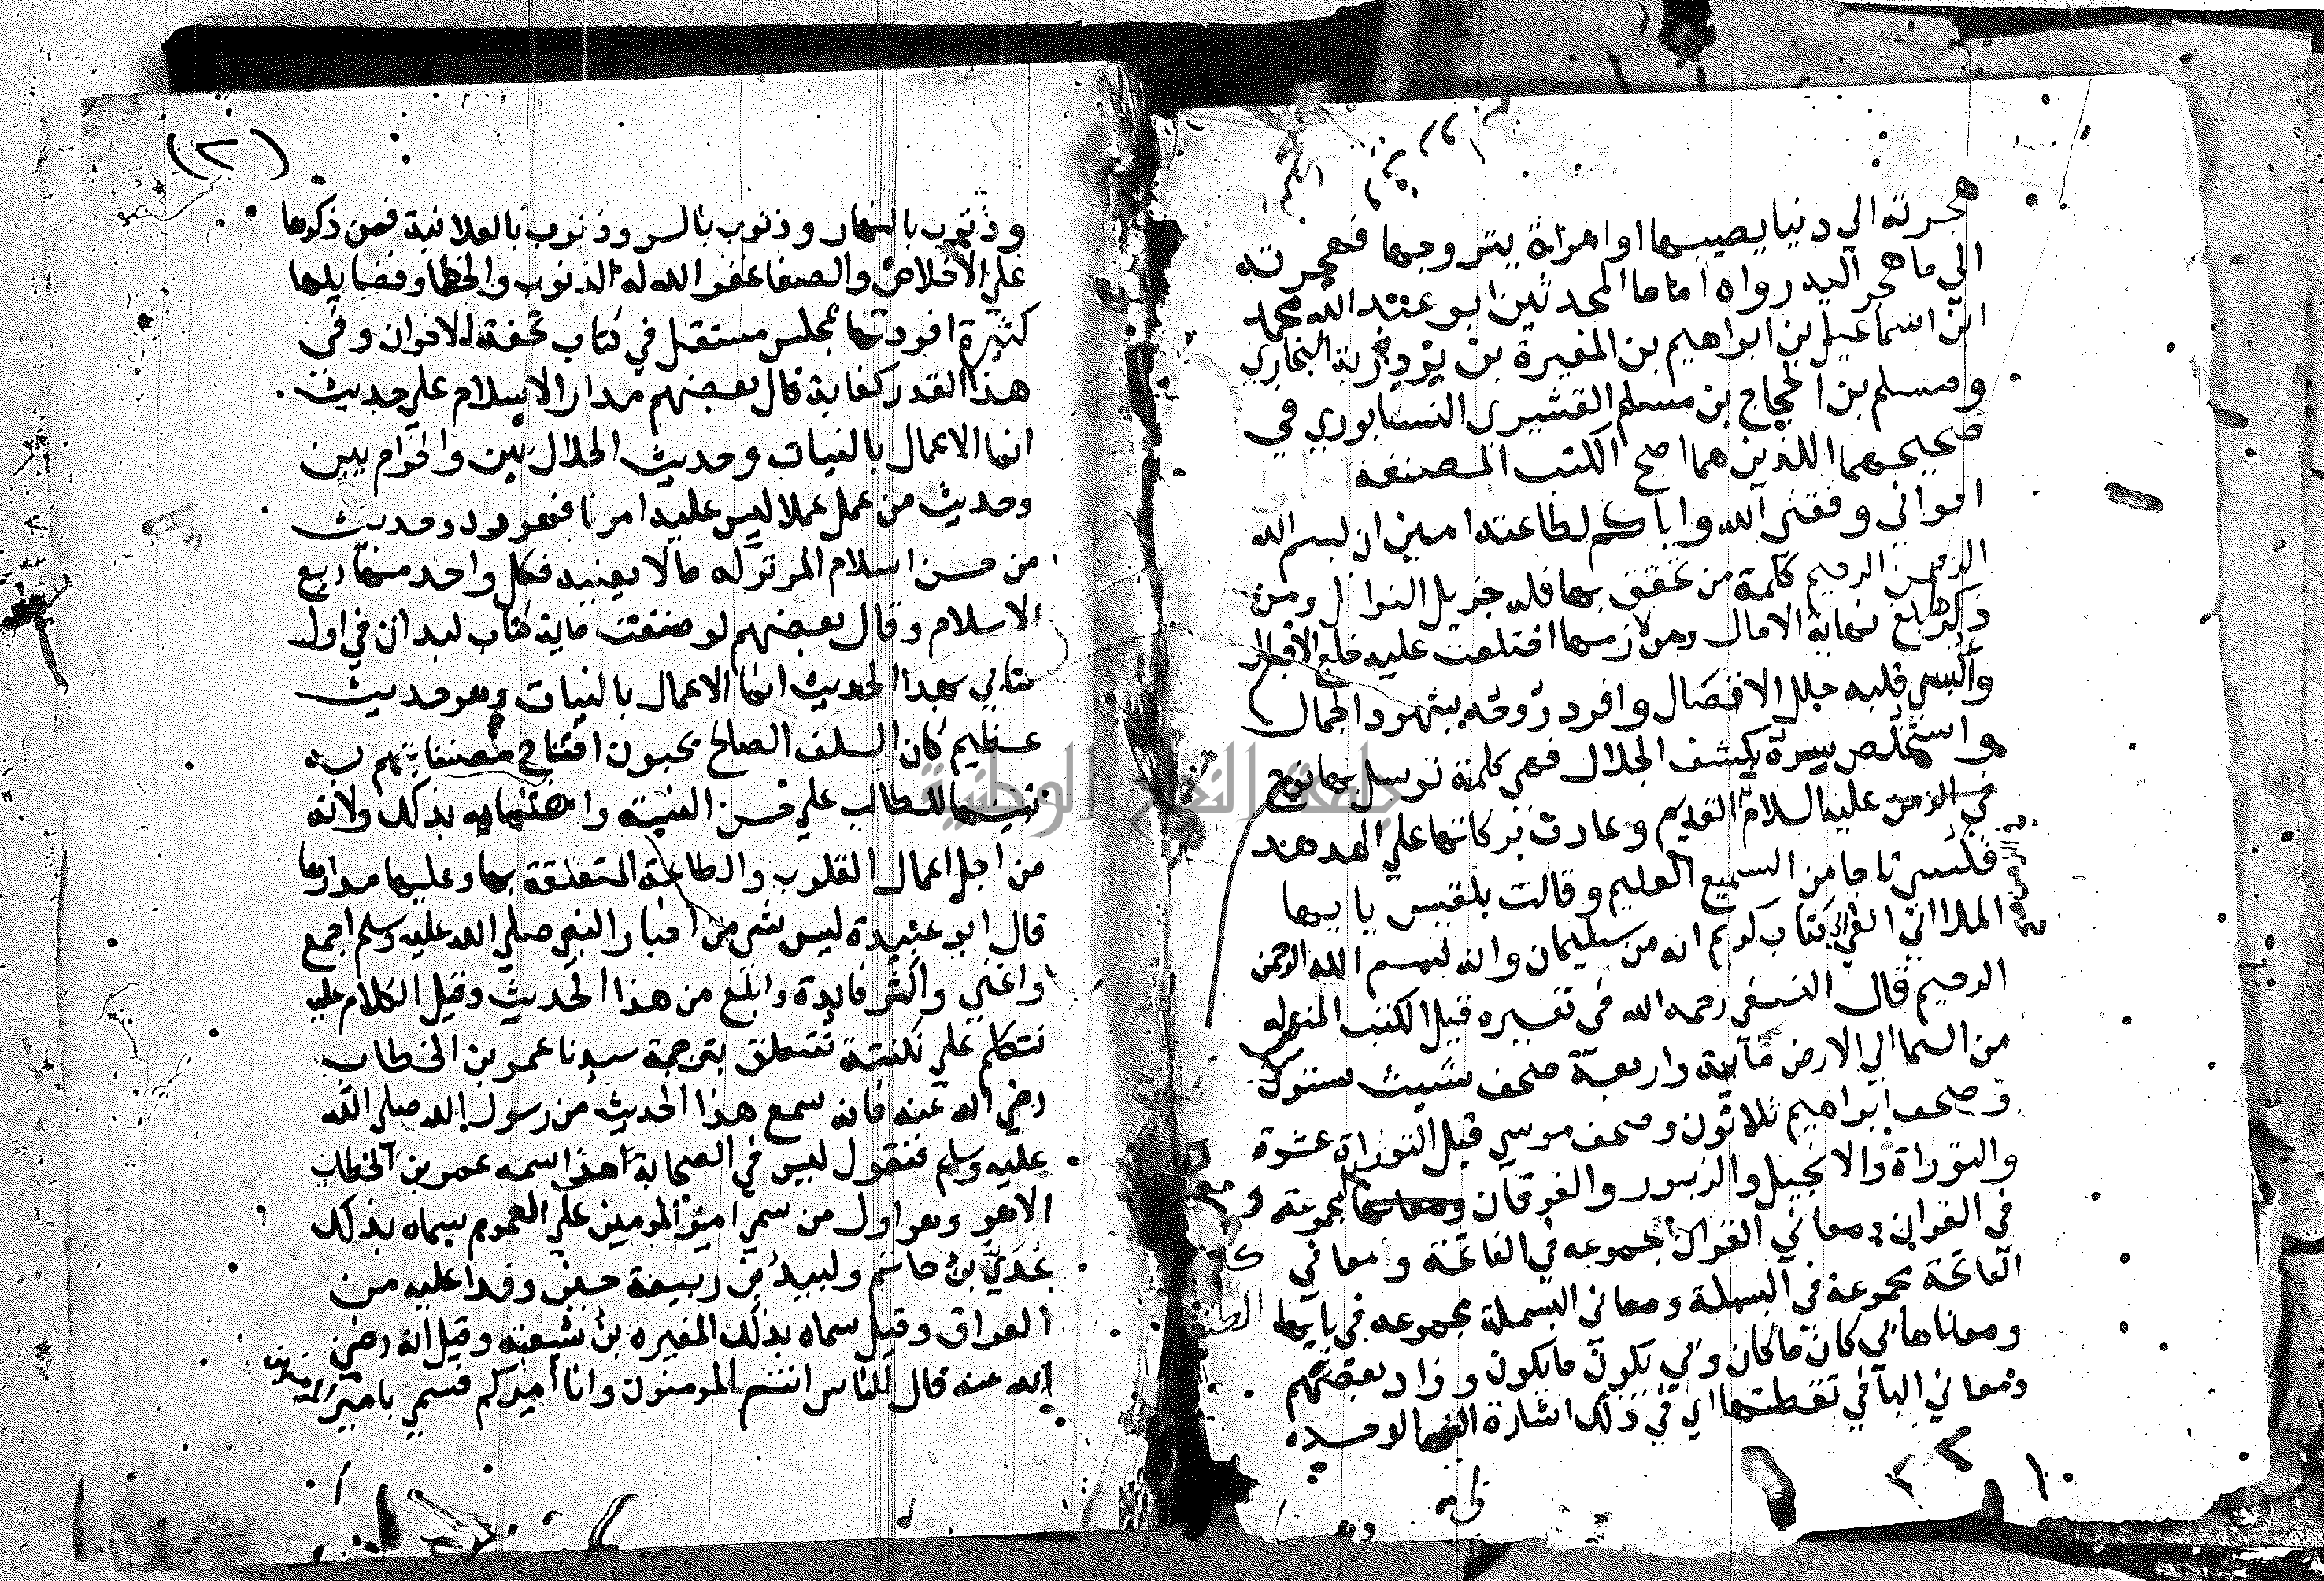 هجرته الي دنيا يصيبها او امراة يتزوجها فهجرته
الي ما هجر اليه رواه اماما المحدثين ابو عبد الله محمد
ابن اسماعيل بن ابراهيم بن المغيرة بن بردزبة البخاري
ومسلم بن الحجاج بن مسلم القشيري النيسابوري في
صحيحيهما اللذين هما اصح الكتب المصنفه
اخواني وفقني الله واياكم لطاعته امين ان بسم الله
الرحمن الرحيم كلمة من تحقق بها فله جزيل النوال ومن
ذكرها بلغ نهاية الامال ومن لازمها اختلعت عليه خلع الاقبال
والبس قلبه حلل الافضال وافرد روحه بشهود الجمال
واستخلص سره بكشف الجلال فهي كلمة توسل بها نوح
في الزمن عليه السلام القديم وعادت بركاتها علي الهدهد
فكسي تاجا من السميع العليم وقالت بلقيس يا يها
الملا اني القي الي كتاب كريم انه من سليمان وانه بسم الله الرحمن
الرحيم قال النسفي رحمه الله في تفسيره قيل الكتب المنزله
من السما الي الارض ماية واربعة صحف شيث ستون
وصحف ابراهيم ثلاثون وصحف موسي قبل التوراة عشرة
والتوراة والانجيل والزبور والفرقان ومعاني مجموعة
في القران ومعاني القران مجموعه في الفاتحة ومعاني
الفاتحة مجموعة في البسملة ومعاني البسملة مجموعه في بايها
ومعناها بي كان ما كان وبي يكون ما يكون وزاد بعضهم
ومعاني البا في نقطتها اي في ذلك اشارة الي الوحده
(٢)
وذنوب بالنهار وذنوب بالسر وذنوب بالعلانية فمن ذكرها
علي الاخلاص والصفا غفر الله له الذنوب والخطا وفضايلها
كثيرة افردتها بمجلس مستقل في كتاب تحفة الاخوان وفي
هذا القدر كفاية قال بعضهم مدار الاسلام علي حديث
انما الاعمال بالنيات وحديث الحلال بين والحرام بين
وحديث من عمل عملا ليس عليه امرنا فهو رد وحديث
من حسن اسلام المرء تركه مالا يعنيه فكل واحد منها ربع
الاسلام وقال بعضهم لو صنفت ماية كتاب لبدات في اول
كتابي بهذا الحديث انما الاعمال بالنيات وهو حديث
عظيم كان السلف الصالح يحبون افتتاح مصنفاتهم به
تنبيها للطالب علي حسن النية واهتمامه بذلك ولانه
من اجل اعمال القلوب والطاعة المتعلقة بها وعليها مدارها
قال ابو عبيدة ليس شي من اخبار النبي صلي الله عليه وسلم اجمع
واغني واكثر فايدة وابلغ من هذا الحديث وقبل الكلام عليه
نتكلم علي نكتة تتعلق بترجمة سيدنا عمر بن الخطاب
رضي الله عنه فانه سمع هذا الحديث من رسول الله صلي الله
عليه وسلم فنقول ليس في الصحابة احد اسمه عمر بن الخطاب
الا هو وهو اول من سمي امير المومنين علي العموم سماه بذلك
عدي بن حاتم ولبيد بن ربيعة حين وفدا عليه من
العراق وقيل سماه بذلك المغيره بن شعبة وقيل انه رضي
الله عنه قال للناس انتم المومنون وانا اميركم فسمي بامير
جامعة النجاح الوطنية